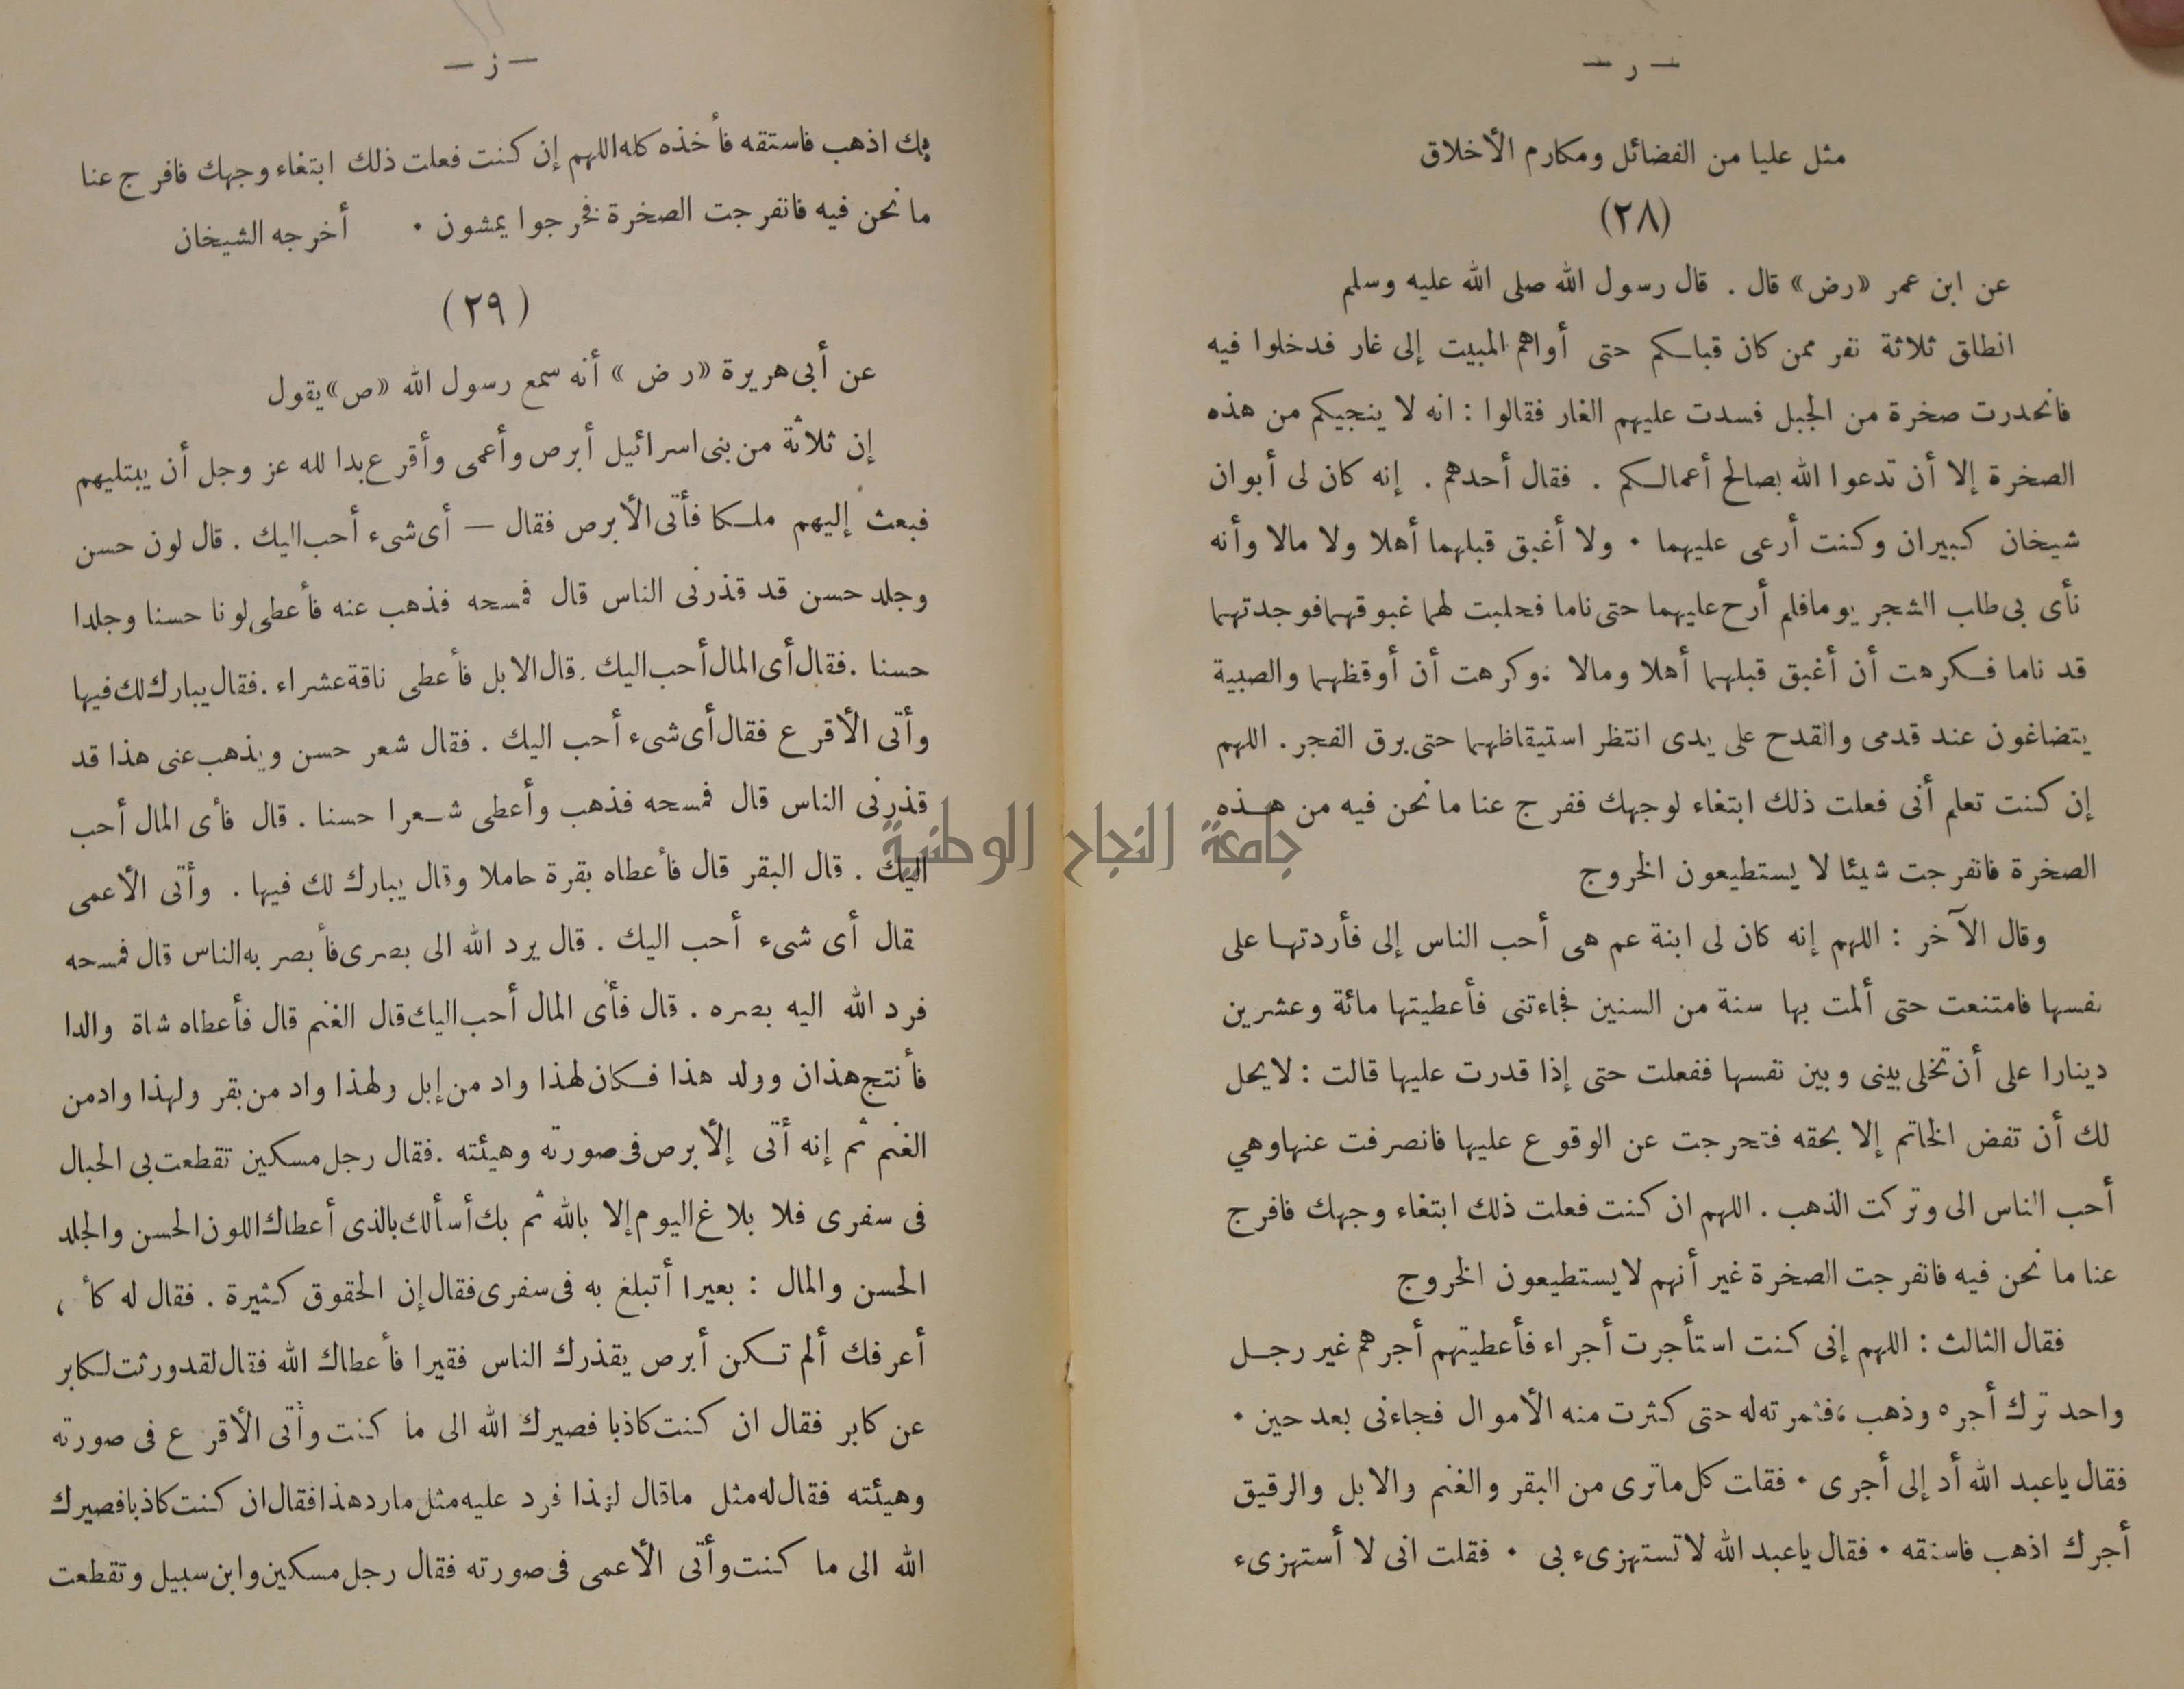 — ر —
مثل عليا من الفضائل ومكارم الأخلاق
(٢٨)
عن ابن عمر «رض» قال . قال رسول الله صلى الله عليه وسلم
انطلق ثلاثة نفر ممن كان قبلكم حتى أواهم المبيت إلى غار فدخلوا فيه
فانحدرت صخرة من الجبل فسدت عليهم الغار فقالوا : انه لا ينجيكم من هذه
الصخرة إلا أن تدعوا الله بصالح أعمالكم . فقال أحدهم . إنه كان لى أبوان
شيخان كبيران وكنت أرعى عليهما . ولا أغبق قبلهما أهلا ولا مالا وأنه
نأى بى طلب الشجر يوما فلم أرح عليهما حتى ناما فحلبت لهما غبوقهما فوجدتهما
قد ناما فكرهت أن أغبق قبلهما أهلا ومالا . وكرهت أن أوقظهما والصبية
يتضاغون عند قدمى والقدح على يدى انتظر استيقاظهما حتى برق الفجر . اللهم
إن كنت تعلم أنى فعلت ذلك ابتغاء لوجهك ففرج عنا ما نحن فيه من هذه
الصخرة فانفرجت شيئا لا يستطيعون الخروج
وقال الآخر : اللهم إنه كان لى ابنة عم هى أحب الناس إلى فأردتها على
نفسها فامتنعت حتى ألمت بها سنة من السنين فجاءتنى فأعطيتها مائة وعشرين
دينارا على أن تخلى بينى وبين نفسها ففعلت حتى إذا قدرت عليها قالت : لا يحل
لك أن تفض الخاتم إلا بحقه فتحرجت عن الوقوع عليها فانصرفت عنها وهي
أحب الناس الى وتركت الذهب . اللهم ان كنت فعلت ذلك ابتغاء وجهك فافرج
عنا ما نحن فيه فانفرجت الصخرة غير أنهم لا يستطيعون الخروج
فقال الثالث : اللهم إنى كنت استأجرت أجراء فأعطيتهم أجرهم غير رجل
واحد ترك أجره وذهب ، فثمرته له حتى كثرت منه الأموال فجاءنى بعد حين .
فقال يا عبد الله أد إلى أجرى . فقلت كل ما ترى من البقر والغنم والابل والرقيق
أجرك اذهب فاستقه . فقال يا عبد الله لا تستهزىء بى . فقلت انى لا أستهزىء
— ز —
بك اذهب فاستقه فأخذه كله اللهم إن كنت فعلت ذلك ابتغاء وجهك فافرج عنا
ما نحن فيه فانفرجت الصخرة فخرجوا يمشون . أخرجه الشيخان
(٢٩)
عن أبى هريرة «رض» أنه سمع رسول الله «ص» يقول
إن ثلاثة من بنى اسرائيل أبرص وأعمى وأقرع بدا لله عز وجل أن يبتليهم
فبعث إليهم ملكا فأتى الأبرص فقال — أى شىء أحب اليك . قال لون حسن
وجلد حسن قد قذرنى الناس قال فمسحه فذهب عنه فأعطى لونا حسنا وجلدا
حسنا . فقال أى المال أحب اليك . قال الابل فأعطى ناقة عشراء . فقال يبارك لك فيها
وأتى الأقرع فقال أى شىء أحب اليك . فقال شعر حسن ويذهب عنى هذا قد
قذرنى الناس قال فمسحه فذهب وأعطى شعرا حسنا . قال فأى المال أحب
اليك . قال البقر قال فأعطاه بقرة حاملا وقال يبارك لك فيها . وأتى الأعمى
قال أى شىء أحب اليك . قال يرد الله الى بصرى فأبصر به الناس قال فمسحه
فرد الله اليه بصره . قال فأى المال أحب اليك قال الغنم قال فأعطاه شاة والدا
فأنتج هذان وولد هذا فكان لهذا واد من إبل ولهذا واد من بقر ولهذا واد من
الغنم ثم إنه أتى الأبرص فى صورته وهيئته . فقال رجل مسكين تقطعت بى الحبال
فى سفرى فلا بلاغ اليوم إلا بالله ثم بك أسألك بالذى أعطاك اللون الحسن والجلد
الحسن والمال : بعيرا أتبلغ به فى سفرى فقال إن الحقوق كثيرة . فقال له كأ
أعرفك ألم تكن أبرص يقذرك الناس فقيرا فأعطاك الله فقال لقد ورثت لكابر
عن كابر فقال ان كنت كاذبا فصيرك الله الى ما كنت وأتى الأقرع فى صورته
وهيئته فقال له مثل ما قال لهذا فرد عليه مثل ما رد هذا فقال ان كنت كاذبا فصيرك
الله الى ما كنت وأتى الأعمى فى صورته فقال رجل مسكين وابن سبيل وتقطعت
جامعة النجاح الوطنية